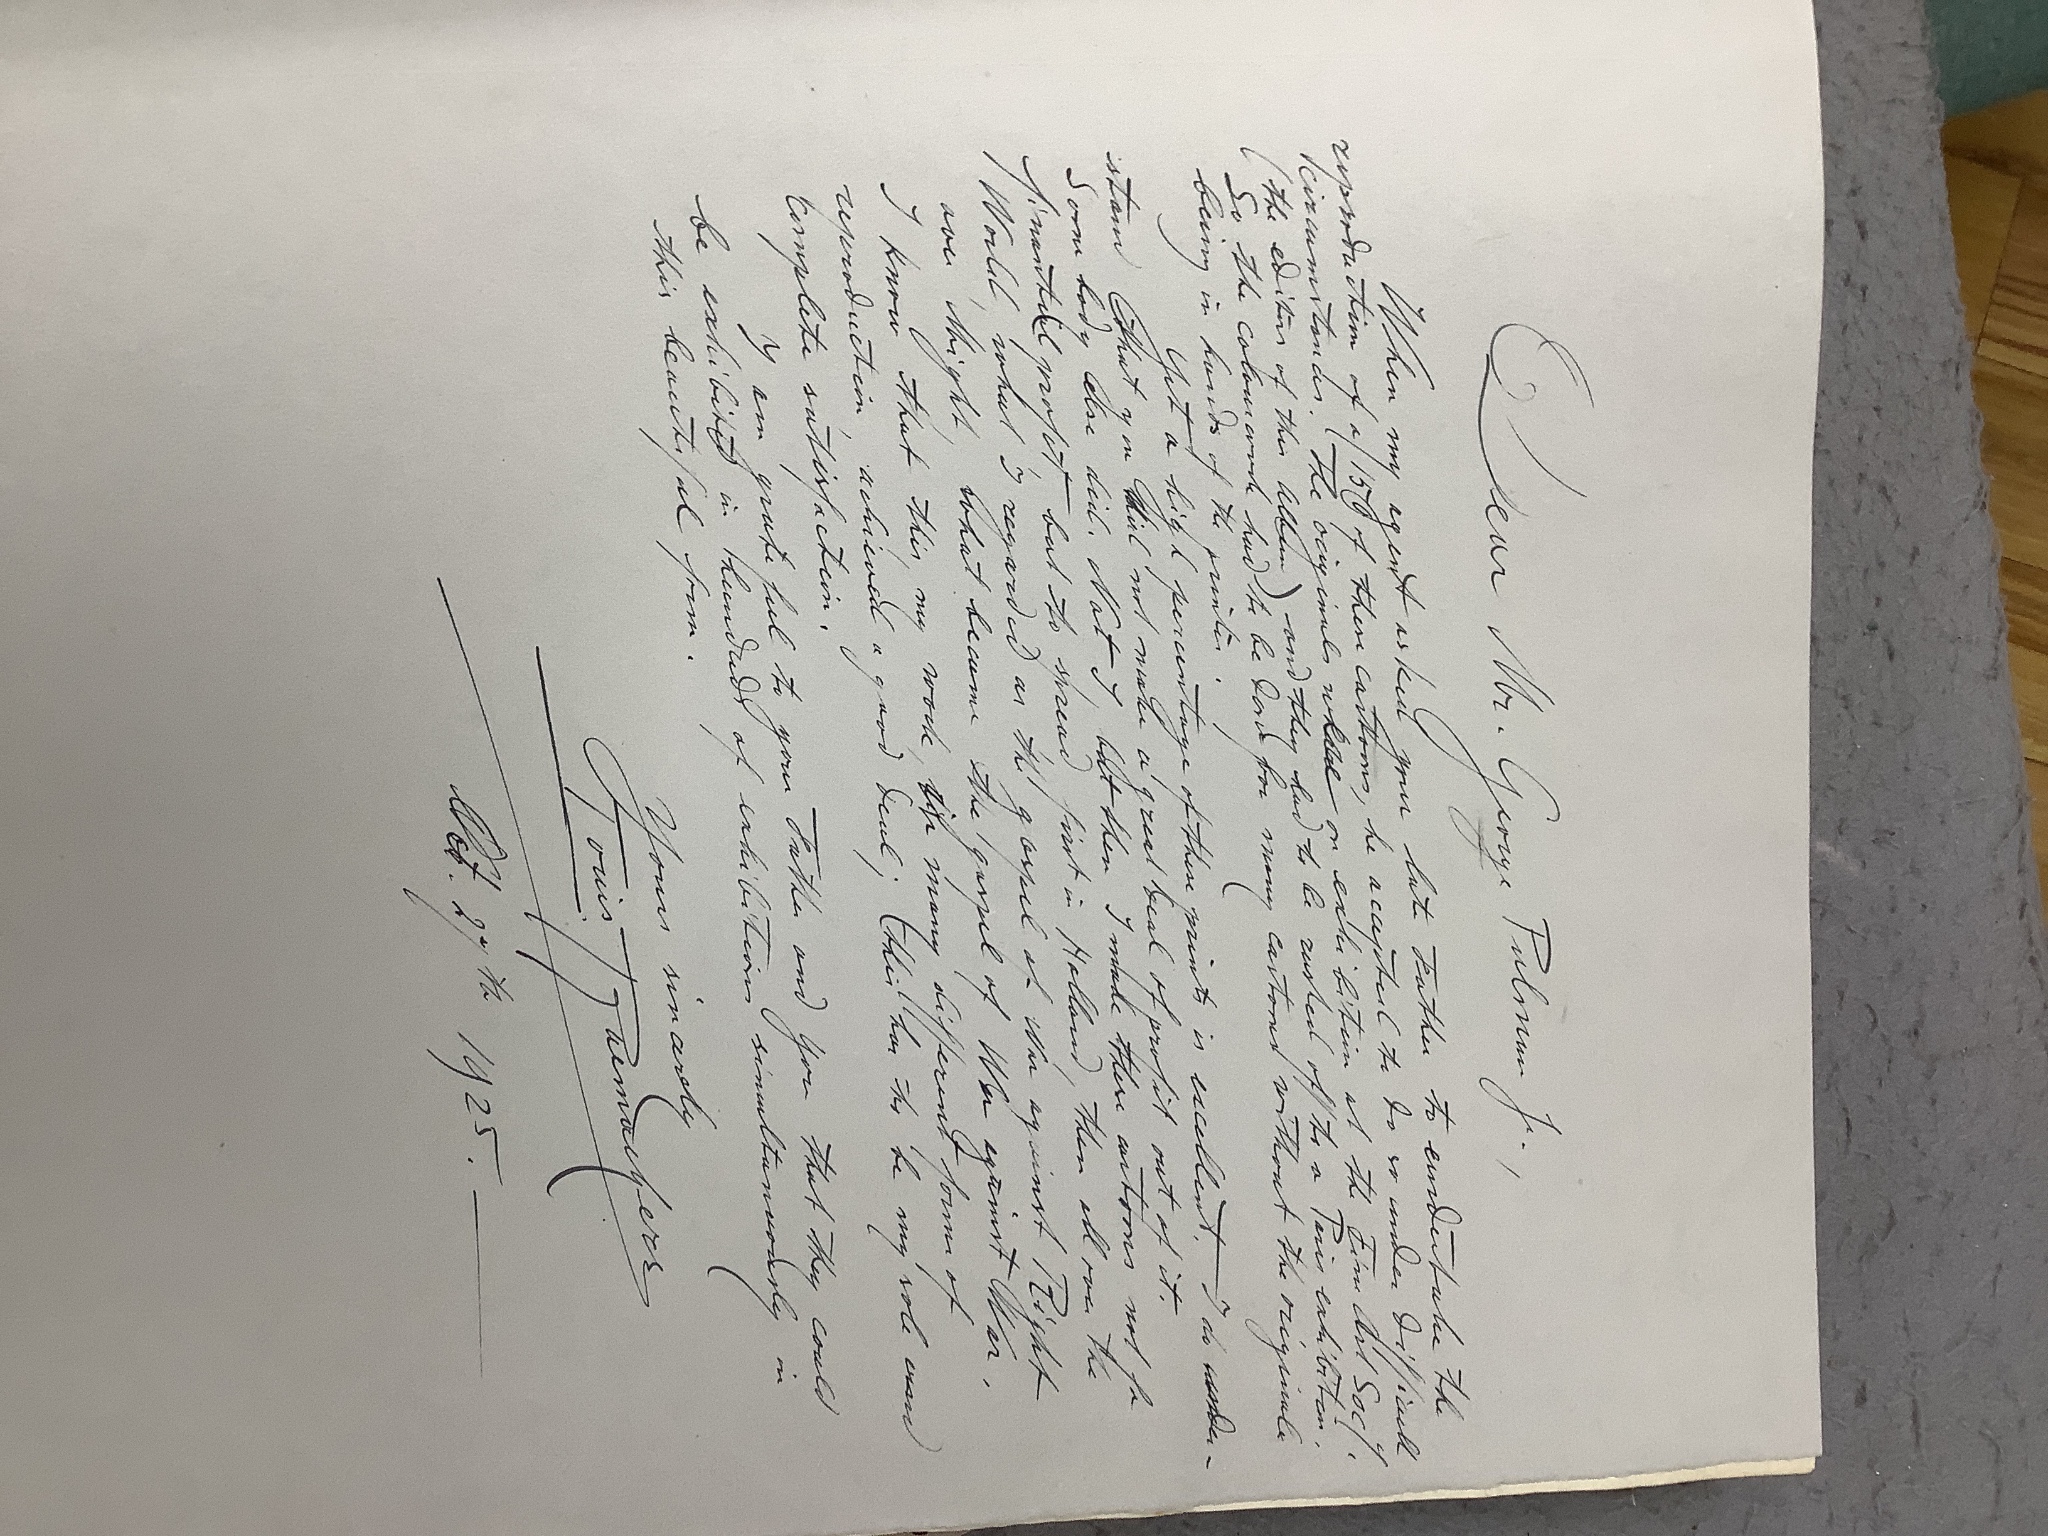 Dear Mr. George Pulman Jr.,
When my agent asked your late Father to undertake the
reproduction of a/150 of these cartoons, he accepted to do so under difficult
circumstances. (The originals were on exhibition at the Fine Art Socy.
(the editors of this album) and they had to be rushed off to a Paris exhibition.
So the colourwork had to be done for many cartoons without the originals
being in hands of the printer.
Yet a high percentage of these prints is excellent. I do under-
stand that you did not make a great deal of profit out of it.
Somebody else did. Not I, but then I made these cartoons not for
financial profit but to spread first in Holland, then all over the
World, what I regarded as the gospel of War against Right
over Might, what became the gospel of War against War.
I know that this my work, in many different forms of
reproduction, achieved a good deal; this has to be my sole and
complete satisfaction.
I am grateful to your Father and you that they could
be exhibited in hundreds of exhibitions simultaneously in
this beautiful form.
Yours sincerely
Louis Raemaekers
29th 1925.